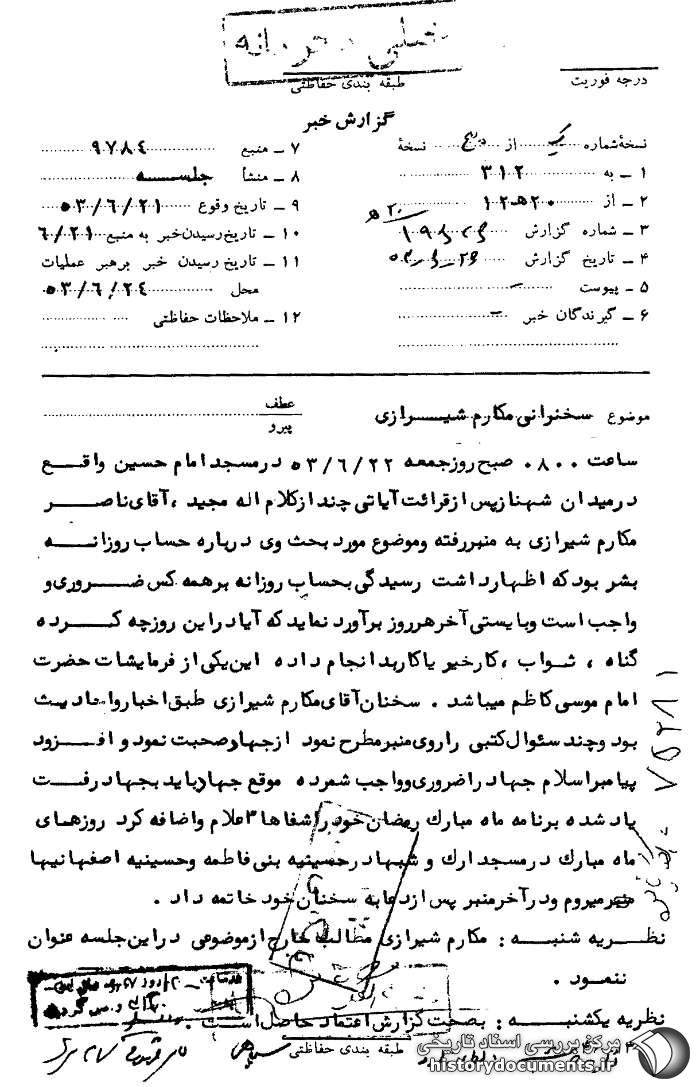 طبقه بندی حفاظتی
درجه فوریت
گزارش خبر
نسخهٔ شماره یک از پنج نسخهٔ
۱ ــ به ۳۱۲
۲ ــ از ۲۰ ه‍ ۱۲
۳ ــ شماره گزارش
۴ ــ تاریخ گزارش
۵ ــ پیوست ــ
۶ ــ گیرندگان خبر ــ
۷ ــ منبع ۹۷۸۴
۸ ــ منشأ جلسه
۹ ــ تاریخ وقوع ۵۳/۶/۲۱
۱۰ ــ تاریخ رسیدن خبر به منبع ۶/۲۱
۱۱ ــ تاریخ رسیدن خبر برهبر عملیات
محل ۵۳/۶/۲۴
۱۲ ــ ملاحظات حفاظتی
موضوع سخنرانی مکارم شیرازی
عطف
پیرو
ساعت ۰۸۰۰ صبح روز جمعه ۵۳/۶/۲۲ در مسجد امام حسین واقع
در میدان شهناز پس از قرائت آیاتی چند از کلام اله مجید ، آقای ناصر
مکارم شیرازی به منبر رفته و موضوع مورد بحث وی درباره حساب روزانه
بشر بود که اظهار داشت رسیدگی بحساب روزانه بر همه کس ضروری و
واجب است و بایستی آخر هر روز برآورد نماید که آیا در این روز چه کرده
گناه ، شواب ، کار خیر یا کار بد انجام داده این یکی از فرمایشات حضرت
امام موسی کاظم میباشد . سخنان آقای مکارم شیرازی طبق اخبار و احادیث
بود و چند سئوال کتبی را روی منبر مطرح نمود از جهاد صحبت نمود و افزود
پیامبر اسلام جهاد را ضروری و واجب شمرده موقع جهاد باید بجهاد رفت
یاد شده برنامه ماه مبارک رمضان خود را شفاها اعلام و اضافه کرد روزهای
ماه مبارک در مسجد ارک و شبها در حسینیه بنی فاطمه و حسینیه اصفهانیها
منبر میروم و در آخر منبر پس از دعا به سخنان خود خاتمه داد .
نظریه شنبه : مکارم شیرازی مطالب خارج از موضوعی در این جلسه عنوان
ننمود .
نظریه یکشنبه : بصحت گزارش اعتماد حاصل است
طبقه بندی حفاظتی
مرکز بررسی اسناد تاریخی
historydocuments.ir